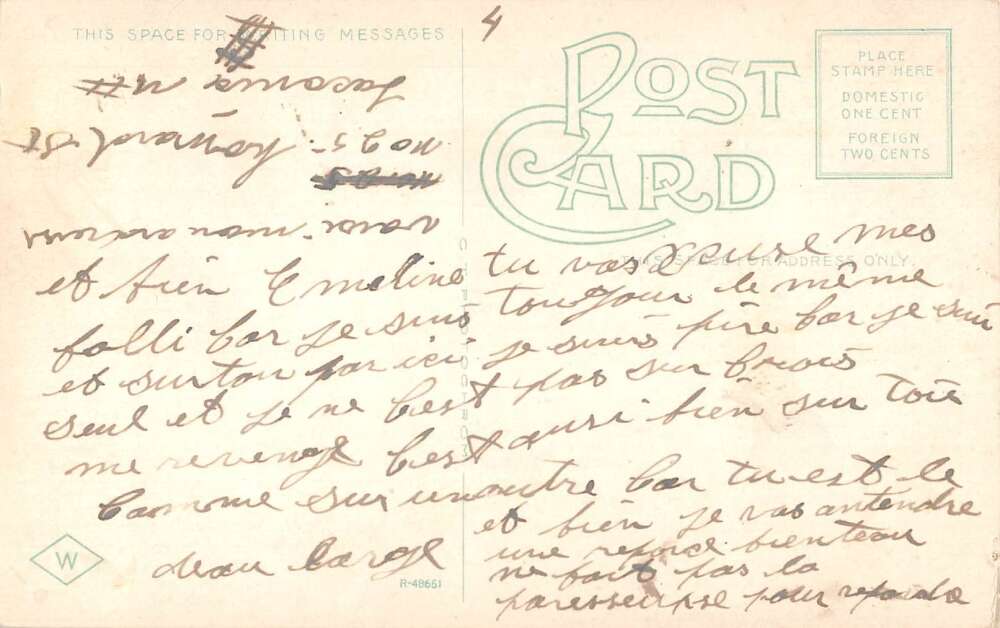 4
THIS SPACE FOR WRITING MESSAGES
POST CARD
PLACE
STAMP HERE
DOMESTIC
ONE CENT
FOREIGN
TWO CENTS
THIS SPACE FOR ADDRESS ONLY.
et bien Emeline tu vas excuse mes
folli car je suis toujour le même
et surtou par ici je suis pire car je suis
seul et je ne cest pas sur
me revenge cest ausi bien sur toi
comme sur un outre car tu est le
et bien je vas antendre
une reponce bienteau
ne fait pas la
paresseusse pour
voici mon
no 25 Howard St
Laconia NH
W
R-48661